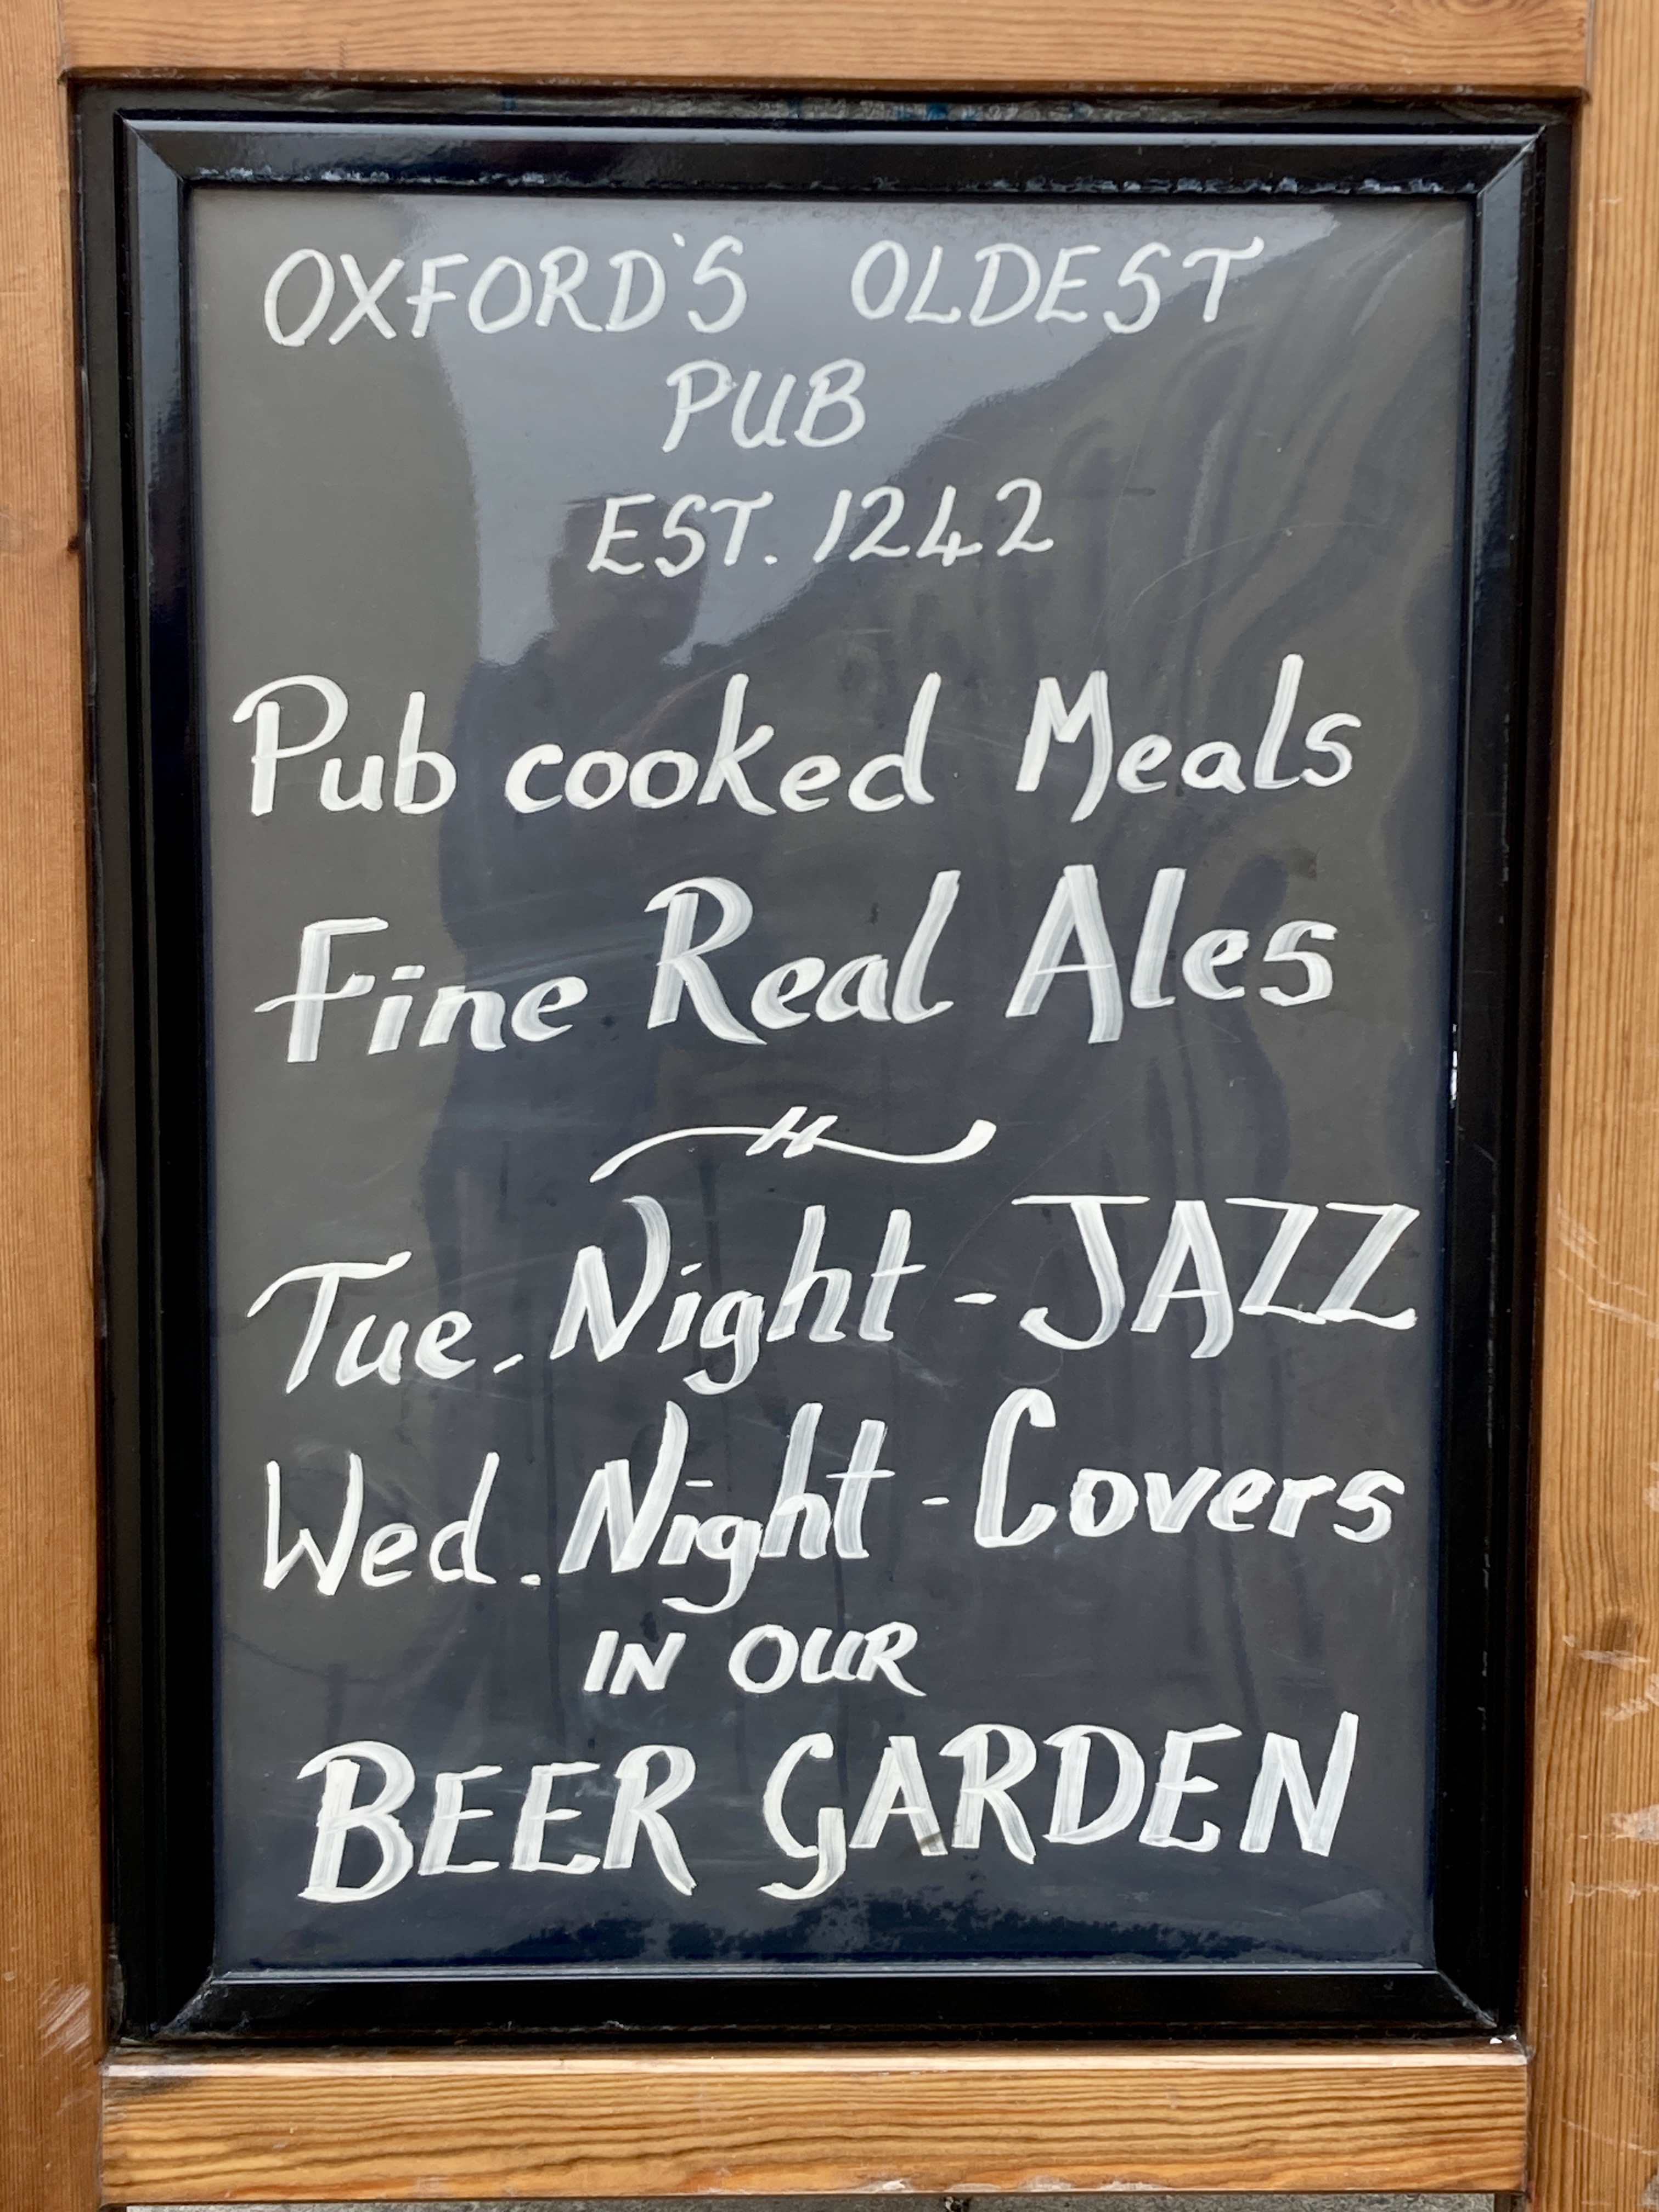 OXFORD'S OLDEST
PUB
EST. 1242
Pub cooked Meals
Fine Real Ales
Tue. Night - JAZZ
Wed. Night - Covers
IN OUR
BEER GARDEN